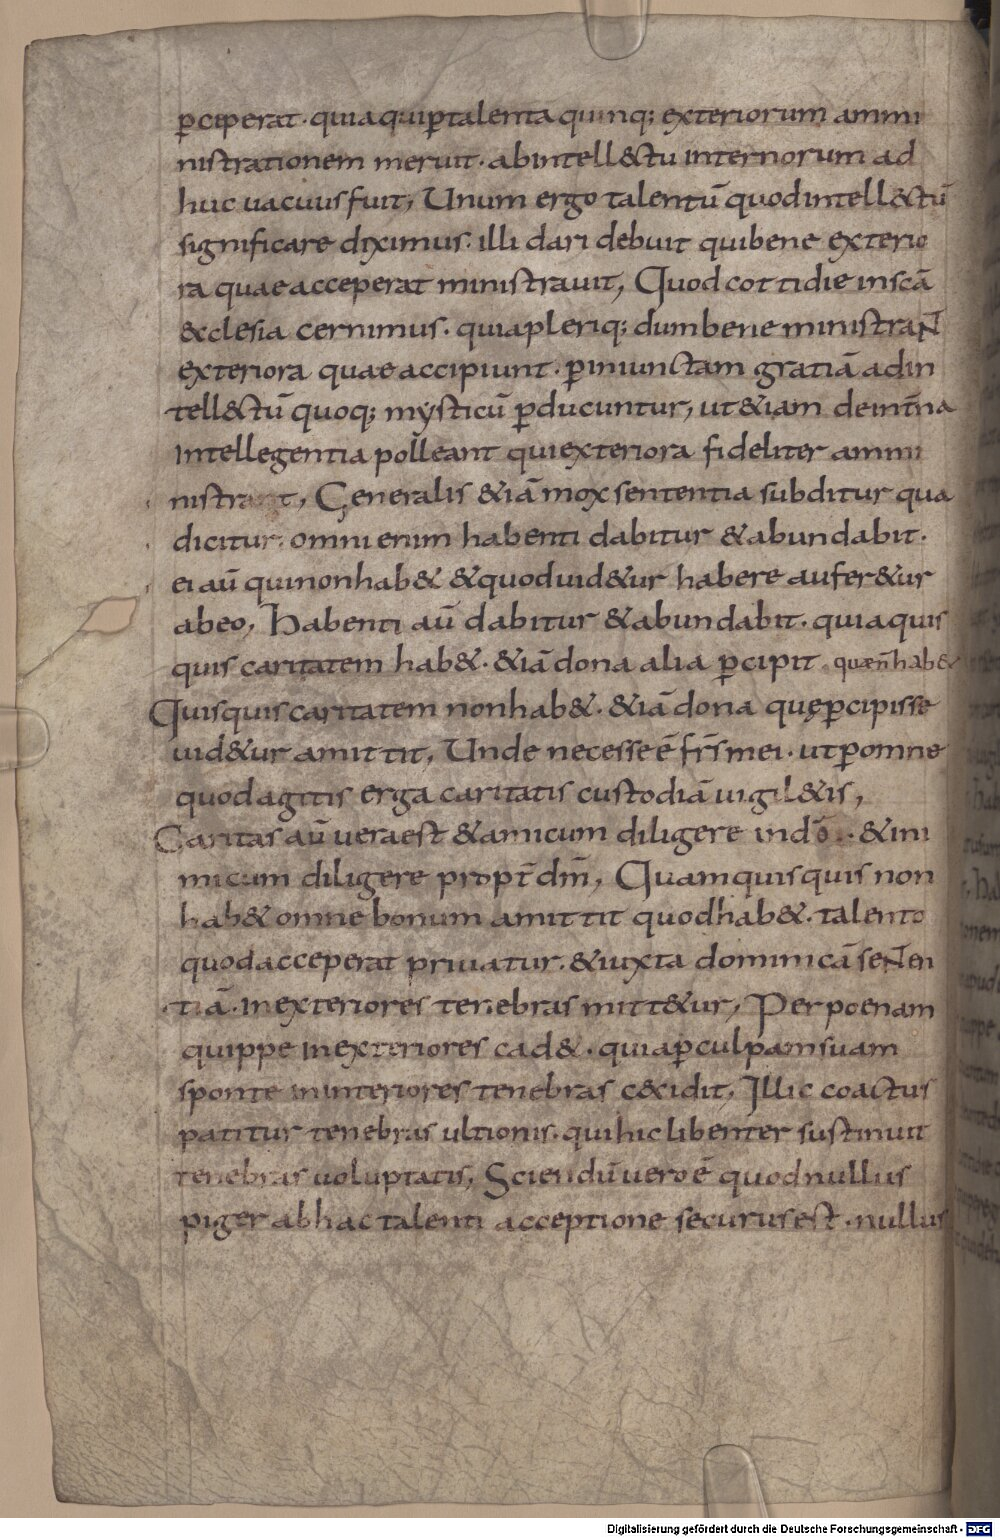 ꝑceperat · quia qui ꝑ talenta quinq; exteriorum ammi
nistrationem meruit · ab intell&ctu internorum ad
huc uacuus fuit, Unum ergo talentū quod intell&ctū
significare diximus · illi dari debuit qui bene exterio
ra quae acceperat ministrauit, Quod cottidie in scā
&cclesia cernimus · quia pleriq; dum bene ministraN
exteriora quae accipiunt · ꝑ iniunctam gratiā ad in
tell&ctū quoq; mysticū ꝑducuntur, ut &iam de int̄na
intellegentia polleant qui exteriora fideliter ammi
nistrant, Generalis &iā mox sententia subditur qua
dicitur · omni enim habenti dabitur & abundabit ·
ei aū qui non hab& & quod uid&ur habere aufer&ur
ab eo, Habenti aū dabitur & abundabit · quia quis
quis caritatem hab& · &iā dona alia ꝑcipit quae n̄ hab&
Quisquis caritatem non hab& · &iā dona quę ꝑcipisse
uid&ur amittit, Unde necesse ē frs̄ mei · ut ꝑ omne
quod agitis erga caritatis custodiā uigil&is,
Caritas aū uera est & amicum diligere in dō · & ini
micum diligere propt̄ dm̄, Quam quisquis non
hab& omne bonum amittit quod hab& · talento
quod acceperat priuatur · & iuxta dominicā seNten
tiā · in exteriores tenebras mitt&ur, Per poenam
quippe in exteriores cad& · quia ꝑ culpam suam
sponte in interiores tenebras c&cidit, Illic coactus
patitur tenebras ultionis · qui hic libenter sustinuit
tenebras uoluptatis, Sciendū uero ē quod nullus
piger ab hac talenti acceptione securus est · nullus
Digitalisierung gefördert durch die Deutsche Forschungsgemeinschaft - DFG